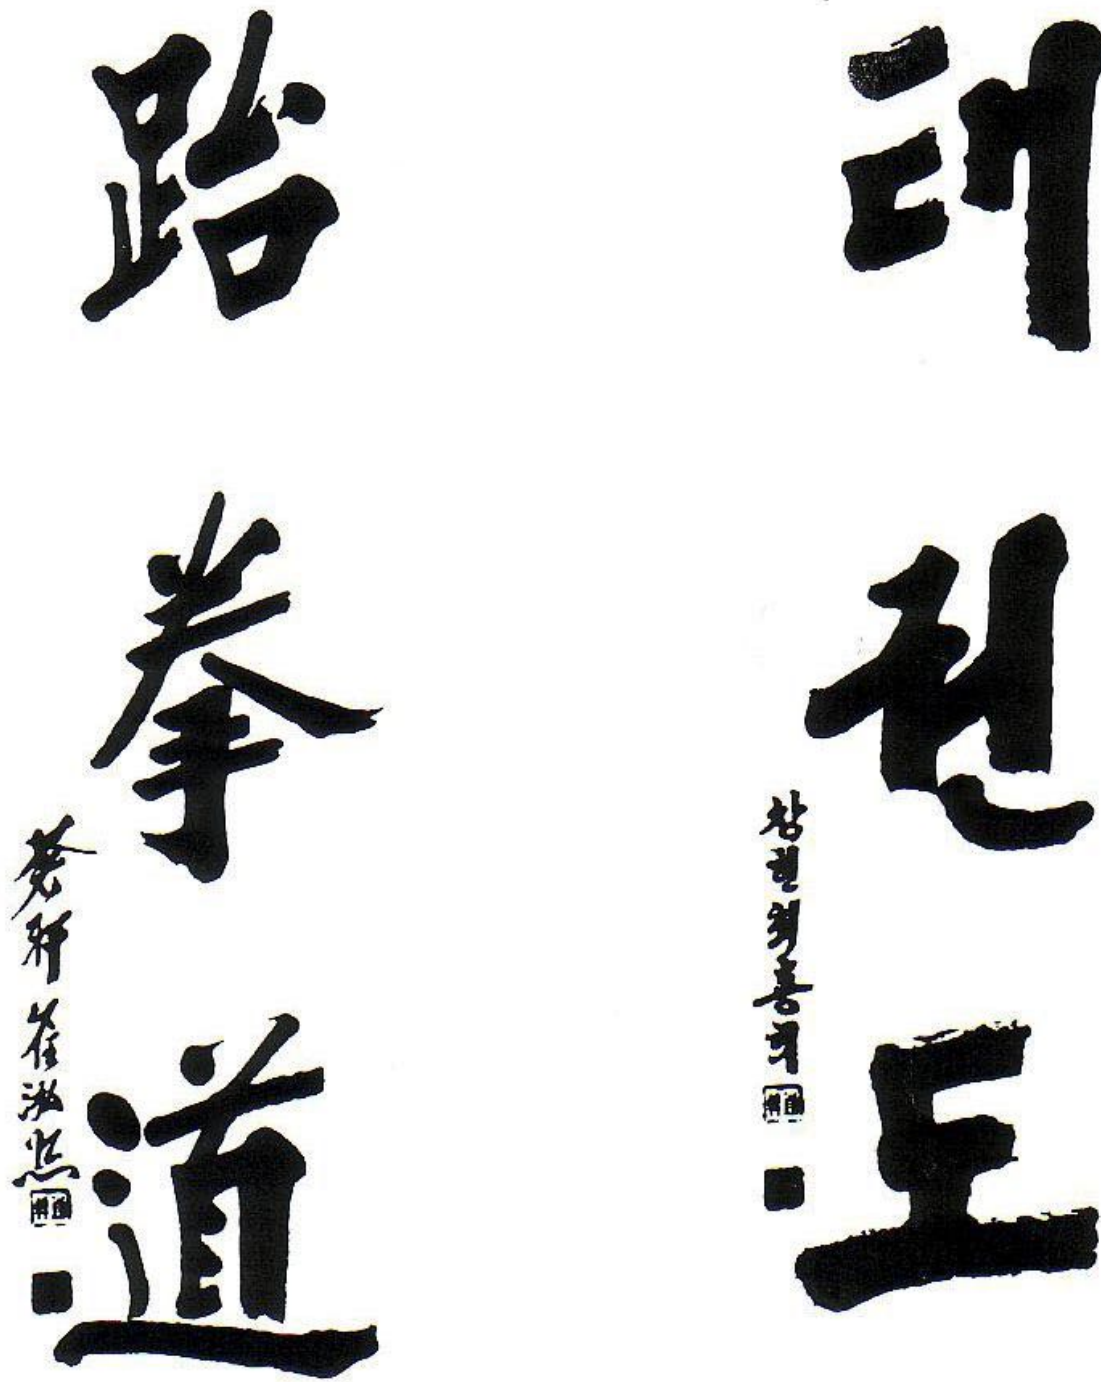 태권도
창헌최홍희
跆拳道
蒼軒崔泓熙